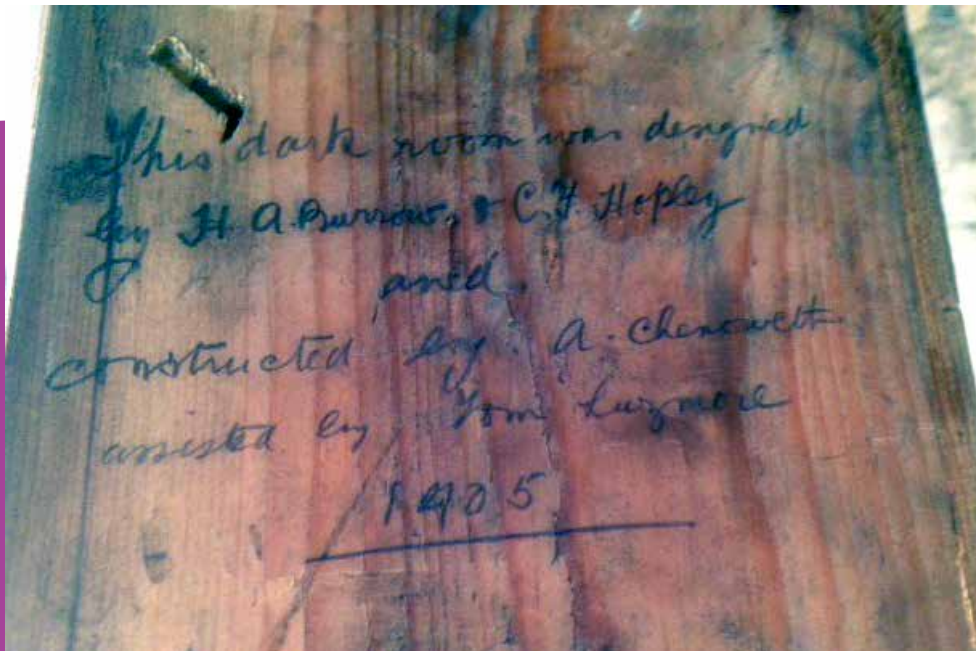 This dark room was designed
by H. A. Burrows & C. F. Hopley
and
constructed by A. Chenoweth
assisted by Tom Luzmore
1905